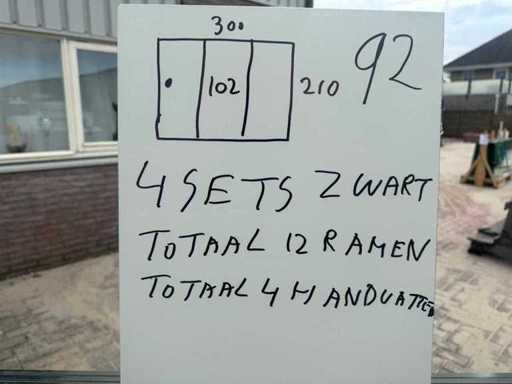 300
92
102
210
4 SETS ZWART
TOTAAL 12 RAMEN
TOTAAL 4 HANDVATTEN